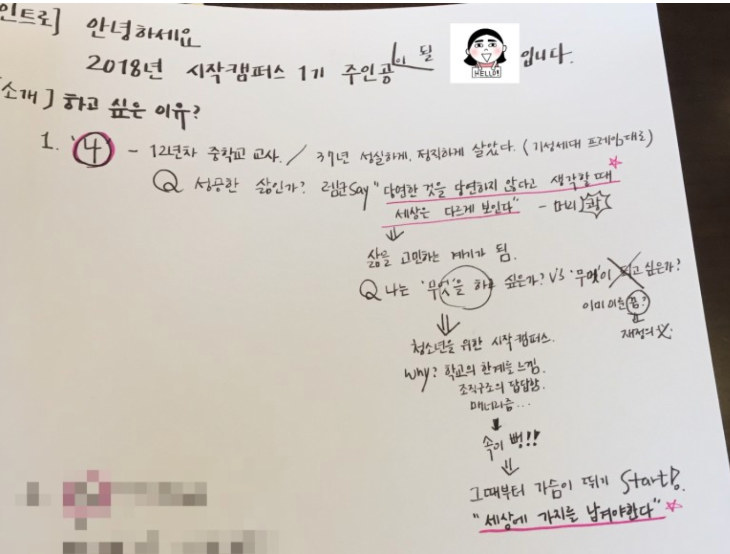 인트로] 안녕하세요
2018년 시작캠퍼스 1기 주인공이 될 HELLO! 입니다.
[소개] 하고 싶은 이유?
1. '4' - 12년차 중학교 교사. / 37년 성실하게, 정직하게 살았다. (기성세대 프레임대로)
Q 성공한 삶인가? say "당연한 것을 당연하지 않다고 생각할 때
세상은 다르게 보인다" - 머리 쾅
삶을 고민하는 계기가 됨.
Q 나는 '무엇'을 하고 싶은가? VS '무엇'이 되고 싶은가?
이미 이룬 꿈?
재정의
청소년을 위한 시작캠퍼스.
Why? 학교의 한계를 느낌.
조직구조의 답답함.
매너리즘...
속이 뻥!!
그때부터 가슴이 뛰기 Start!
"세상에 가치를 남겨야한다"